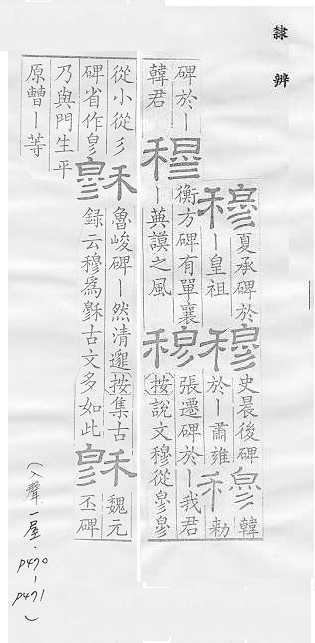 隸辨
穆
夏承碑於
丨皇祖
穆
史晨後碑
於丨肅雍
穆
韓
勑
碑於丨
韓君
穆
衡方碑有單襄
丨英謨之風
穆
張遷碑於丨我君
按說文穆從㣎㣎
從小從彡
碑省作㣎
穆
魯峻碑丨然清邈按集古
録云穆爲龢古文多如此
穆
魏元
丕碑
乃與門生平
原丨等
(入聲一屋.p470-p471)